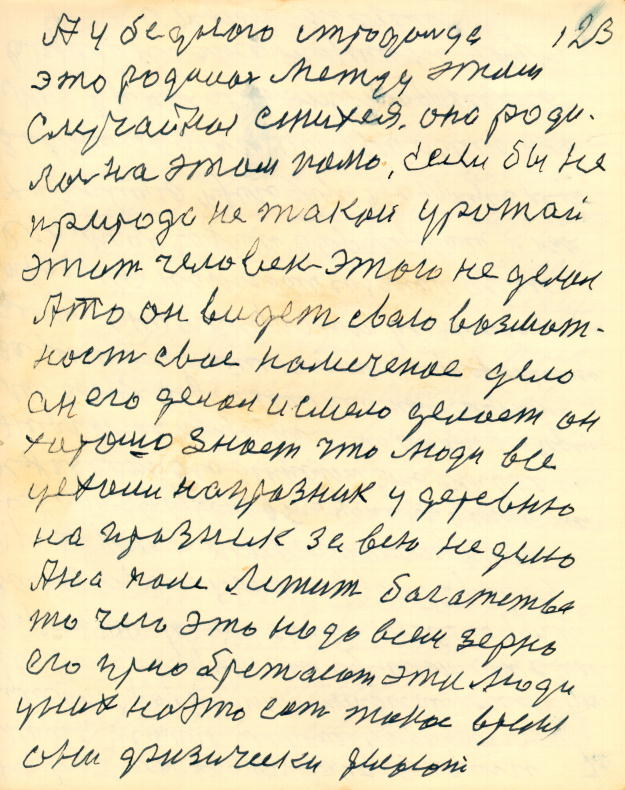 А у бедного страдаида 123
это родилас между этим
случайная стихея. она роди-
лас на этом поле, если бы не
природа не такои урожаи
этот человек этого не делал
Ато он видет сваю возмож-
ность свое намеченое дело
он его делал и смело делает он
харошо знает что люди все
уехали напразник у деревню
на празник за всю неделю
Ана поле Лежит багатства
то чего это надо всем зерно
его приобретают эти люди
уних наэто ест такое время
они физически